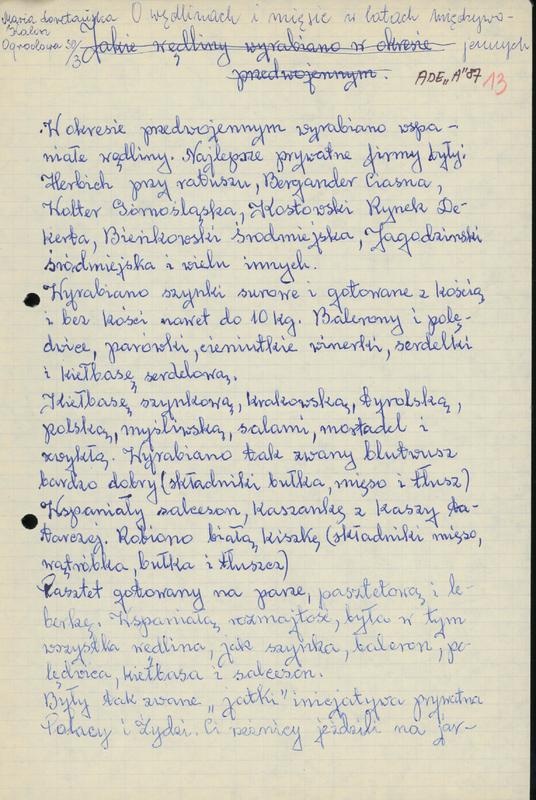 Maria
Kalisz
Ogrodowa
O wędlinach i mięsie w latach międzywo-
jennych
Jakie wędliny wyrabiano w okresie
przedwojennym.
ADE „A" 87
13
W okresie przedwojennym wyrabiano wspa-
niałe wędliny. Najlepsze prywatne firmy były:
Herbich przy ratuszu, Bergander Ciasna,
Wolter Górnośląska, Kostowski Rynek De-
kerta, Bieńkowski Śródmiejska, Jagodziński
Śródmiejska i wielu innych.
Wyrabiano szynki surowe i gotowane z kością
i bez kości nawet do 10 kg. Balerony i polę-
dwice, parówki, cieniutkie winerki, serdelki
i kiełbasę serdelową.
Kiełbasę szynkową, krakowską, tyrolską,
polską, myśliwską, salami, mortadel i
zwykłą. Wyrabiano tak zwany blutwusz
bardzo dobry (składniki bułka, mięso i tłusz)
Wspaniały salceson, kaszankę z kaszy ta-
tarczej. Robiono białą kiszkę (składniki mięso,
wątróbka, bułka i tłuszcz)
Pasztet gotowany na parze, pasztetową i le-
berkę. Wspaniałą rozmajtość, była w tym
wszystka wędlina, jak szynka, baleron, po-
lędwica, kiełbasa i salceson.
Były tak zwane „jatki" inicjatywa prywatna
Polacy i Żydzi. Ci rzeźnicy jeździli na jar-